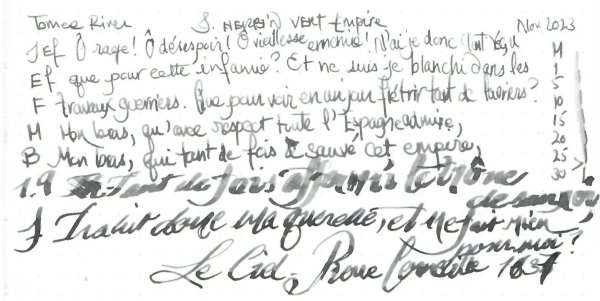 Tomoe River J. HERBIN VERT Empire Nov. 2023
JEF Ô rage! Ô désespoir! Ô vieillesse ennemie! N'ai je donc tant vécu M
EF que pour cette infamie? Et ne suis-je blanchi dans les 1
F travaux guerriers. Que pour voir en un jour flétrir tant de lauriers? 5
10
M Mon bras, qu'avec respect toute l'Espagne admire, 15
20
B Mon bras, qui tant de fois a sauvé cet empire, 25
30
1.9 Tant de fois affermi le trône
de son roi,
J Trahit donc ma querelle, et ne fait rien
pour moi?
Le Cid, Corneille 1637